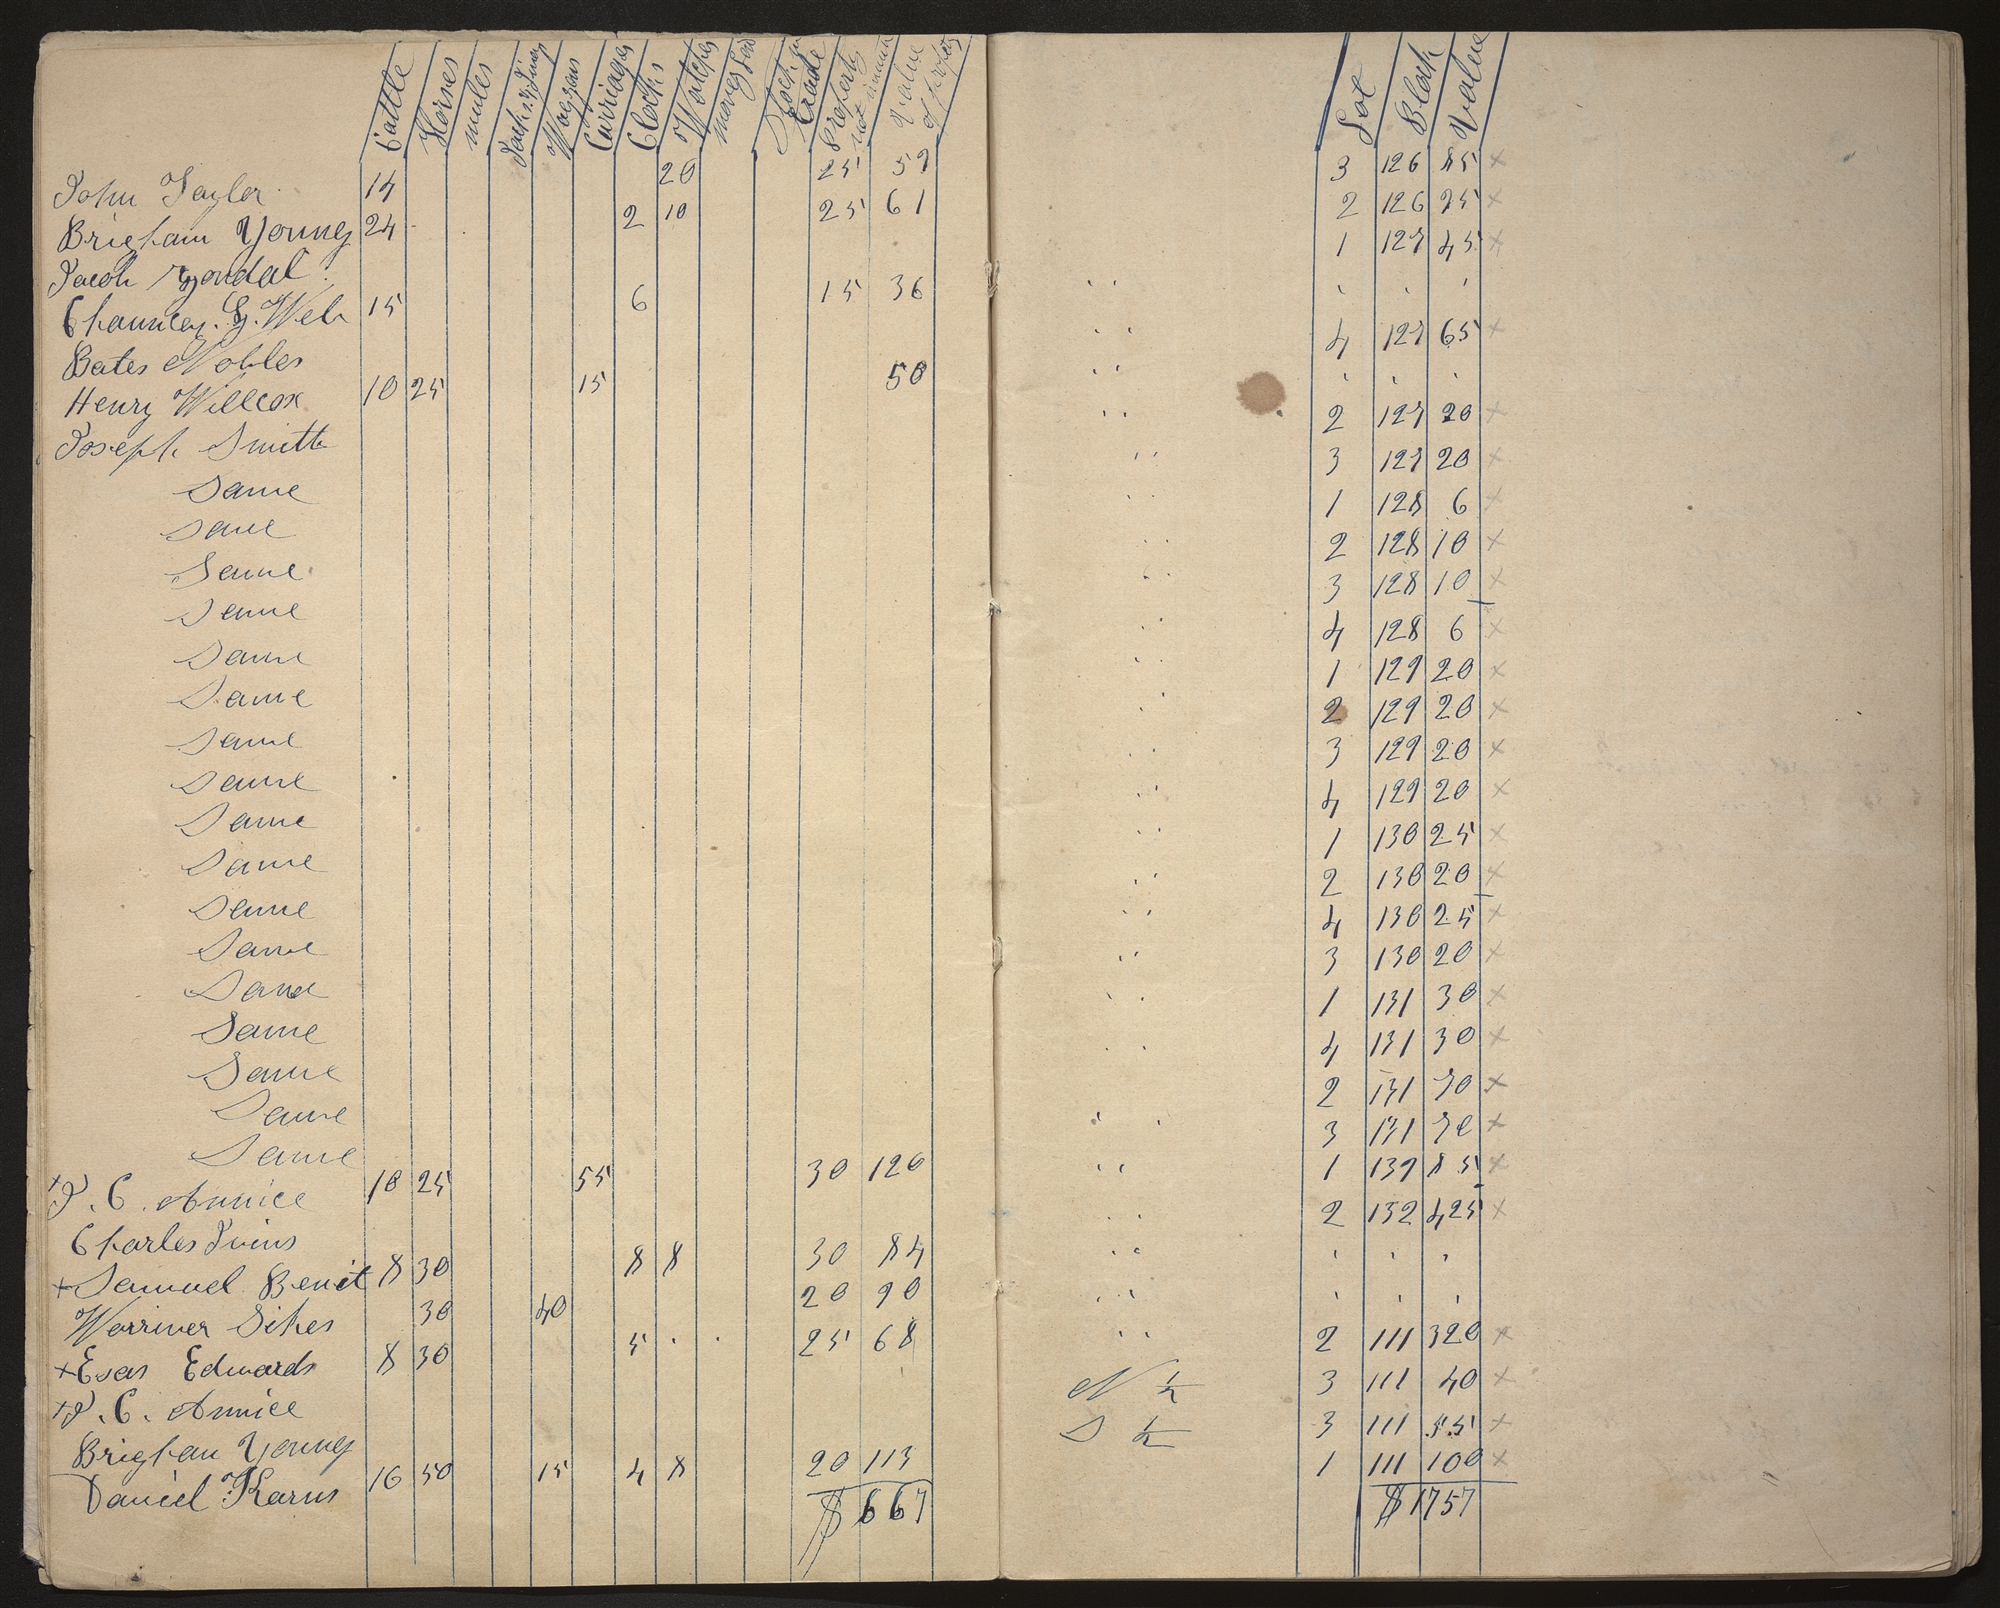 Cattle Horses mules Jacks & Jines Waggons Carriages Clocks Watches money Stock in trade Property not enum Value of property Lot Block Value
John Taylor 14 20 25 59 3 126 85 ×
Brigham Young 24 2 10 25 61 2 126 25 ×
Jacob 1 127 45 ×
Chauncey. G. Web 15 6 15 36 ' ' '
Bates Nobles 4 127 65 ×
Henry Willcox 10 25 15 50 ' ' '
Joseph Smith 2 127 20 ×
Same 3 127 20 ×
Same 1 128 6 ×
Same 2 128 10 ×
Same 3 128 10 ×
Same 4 128 6 ×
Same 1 129 20 ×
Same 2 129 20 ×
Same 3 129 20 ×
Same 4 129 20 ×
Same 1 130 25 ×
Same 2 130 20 ×
Same 4 130 25 ×
Same 3 130 20 ×
Same 1 131 30 ×
Same 4 131 30 ×
Same 2 131 30 ×
Same 3 131 30 ×
Same 1 132 85 ×
× J. C. Annice 10 25 55 30 120 2 132 425 ×
Charles Ivins ' ' '
× Samuel Benit 8 30 8 8 30 84 ' ' '
Warriner Sikes 30 40 20 90 2 111 320 ×
× Esas Edwards 8 30 5 25 68 N ½ 3 111 40 ×
× J. C. Annice S ½ 3 111 55 ×
Brigham Young 1 111 100 ×
Daniel Karns 16 50 15 4 8 20 113
$ 667 $ 1757